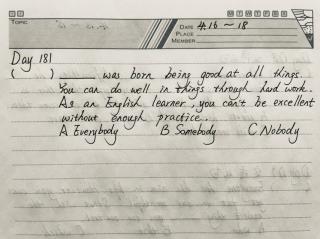 TOPIC
M T W T F S S
DATE 4.16 ~ 18
PLACE
MEMBER
Day 181
( ) _____ was born being good at all things.
You can do well in things through hard work.
As an English learner, you can't be excellent
without enough practice.
A Everybody B Somebody C Nobody